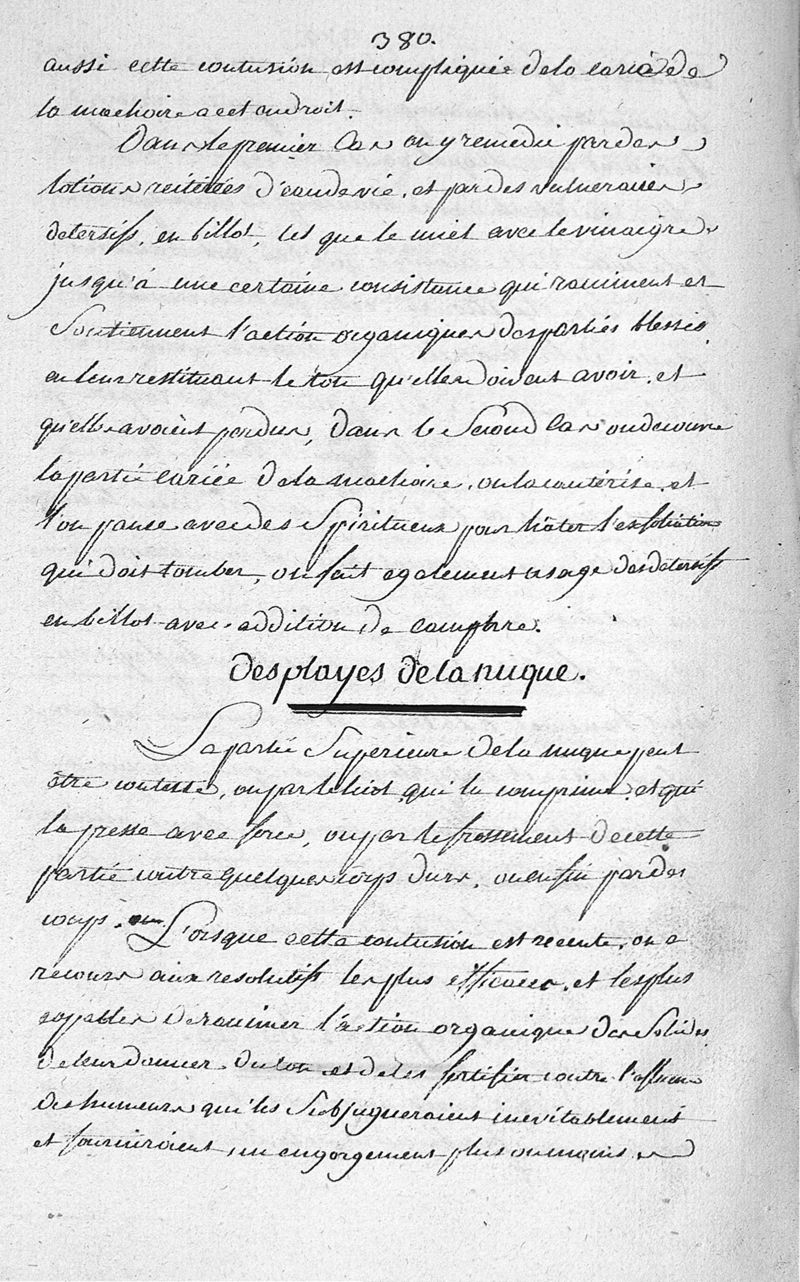 380.
aussi cette contusion est compliquée de la carie de
la machoire a cet endroit.
Dans le premier Cas on y remedie par des
lotions reiterées d'eau de vie, et par des vulneraires
detersifs, en billot, tels que le miel avec le vinaigre
jusqu'à une certaine consistance qui raniment et
Soutiennent l'action organique des parties blessés
en leur restituant le ton qu'elles doivent avoir, et
qu'elles avoient perdus, Dans le Second Cas on decouvre
la partie cariée de la machoire, on la cautérise, et
l'on pance avec des Spiritueux pour hâter l'exfoliation
qui doit tomber, on fait egalement usage des detersifs
en billot avec addition de camphre.
des playes de la nuque.
La partie Superieure de la nuque peut
être contuse, ou par le licol qui la comprime et qui
la presse avec force, ou par le frottement de cette
partie contre quelques corps durs, ou enfin par des
coups. Lorsque cette contusion est recente, on a
recours aux resolutifs les plus efficaces, et les plus
capables de ranimer l'action organique des Solides
de leur donner du ton et de les fortifier contre l'affluence
des humeurs qui les Subjugueraient inevitablement
et fourniroient un engorgement plus ou moins